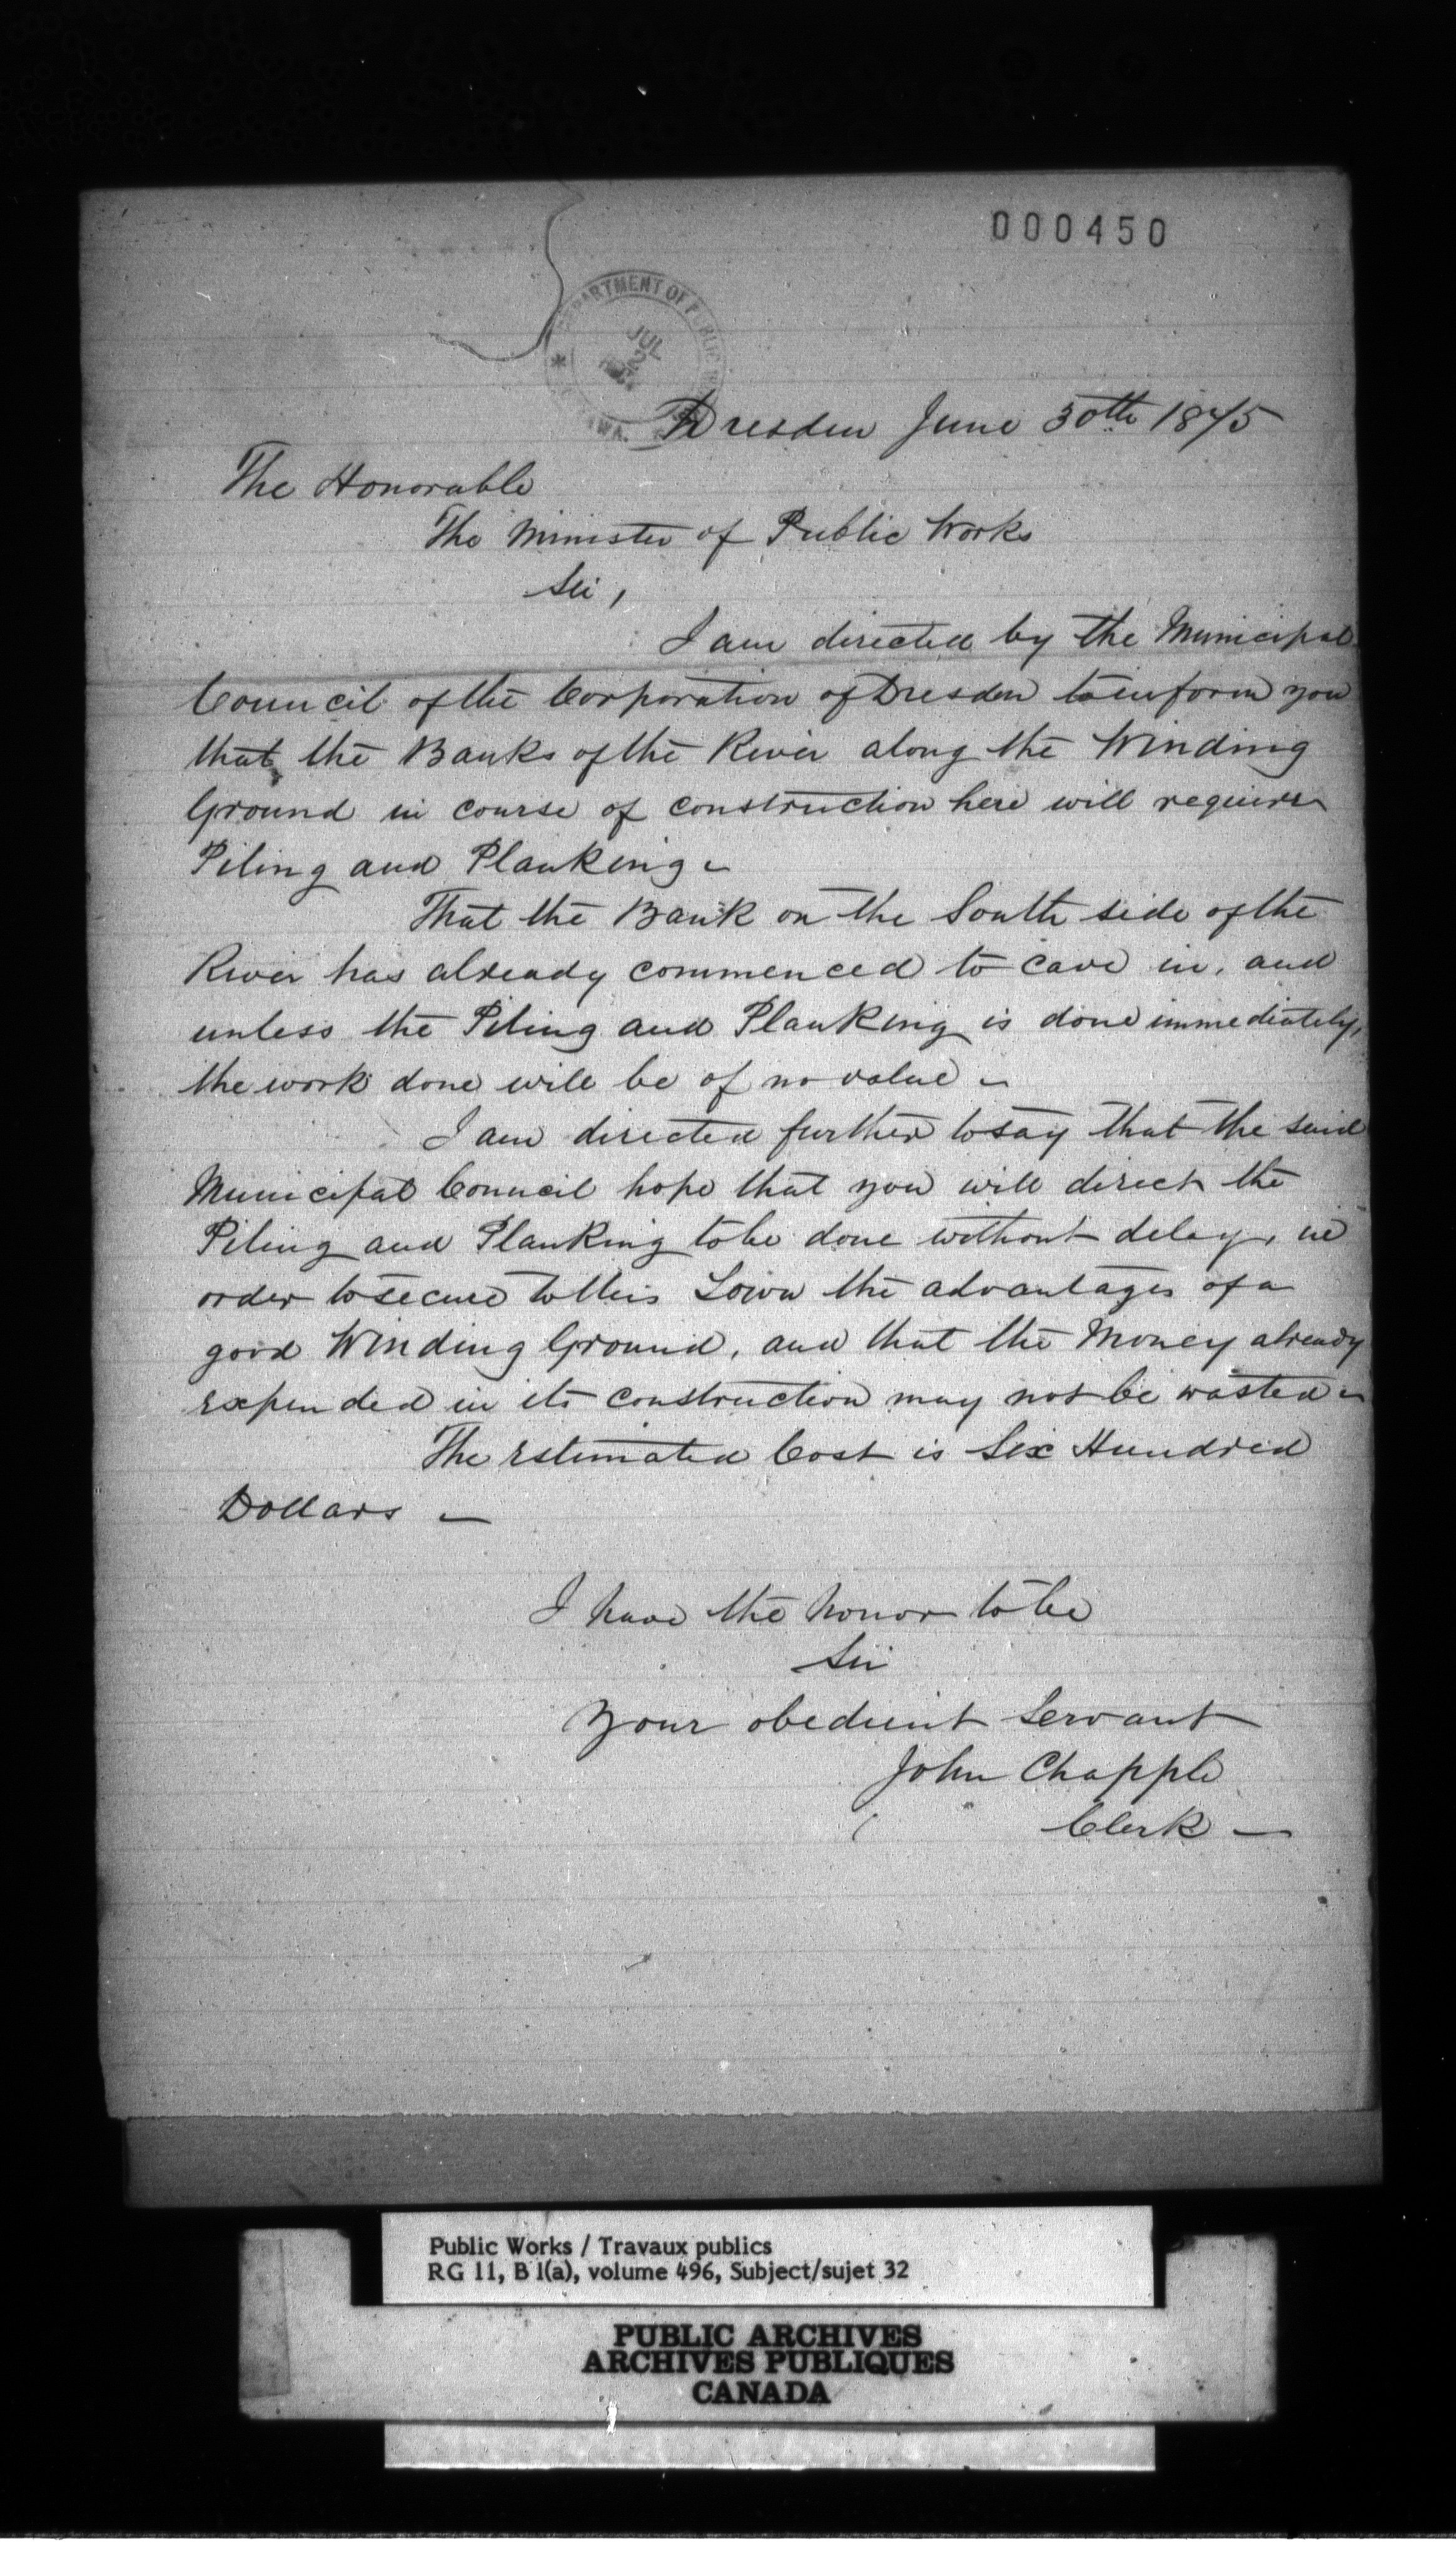 000450
DEPARTMENT OF PUBLIC
JUL
Dresden June 30th 1875
The Honorable
The Minister of Public Works
Sir,
I am directed by the Municipal
Council of the Corporation of Dresden to inform you
that the Banks of the River along the Winding
Ground in course of construction here will require
Piling and Planking -
That the Bank on the South side of the
River has already commenced to cave in, and
unless the Piling and Planking is done immediately,
the work done will be of no value -
I am directed further to say that the said
Municipal Council hope that you will direct the
Piling and Planking to be done without delay, in
order to secure to this Town the advantages of a
good Winding Ground, and that the Money already
expended in its construction may not be wasted -
The Estimated Cost is Six Hundred
Dollars -
I have the honor to be
Sir
Your obedient Servant
John Chapple
Clerk -
Public Works / Travaux publics
RG 11, B 1(a), volume 496, Subject/sujet 32
PUBLIC ARCHIVES
ARCHIVES PUBLIQUES
CANADA